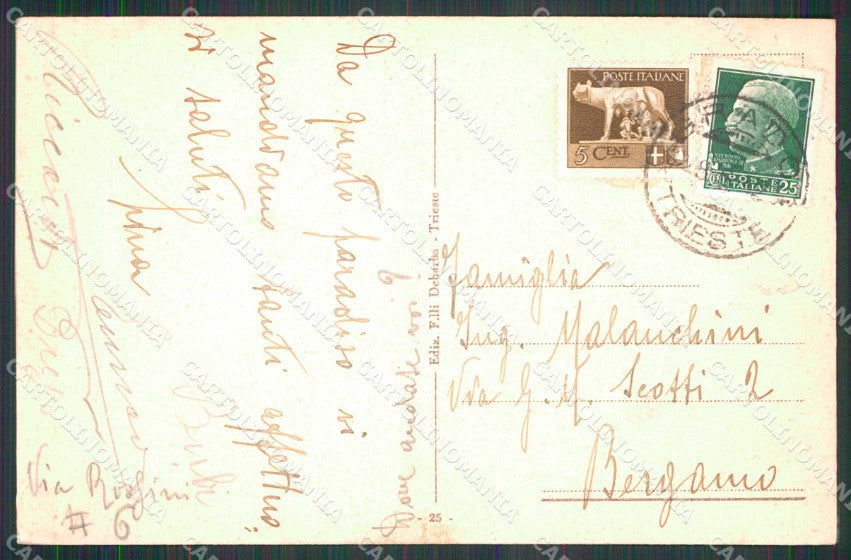 Da questo paradiso vi
mandiamo tanti affettuo:
si saluti
Dove andate voi
6
Via Rossini
# 6
Ediz. F.lli Debarba - Trieste
- 25 -
POSTE ITALIANE
5 CENT.
POSTE
ITALIANE 25
TRIESTE
Famiglia
Ing. Malanchini
Via G. M. Scotti 2
Bergamo
CARTOLINOMANIA